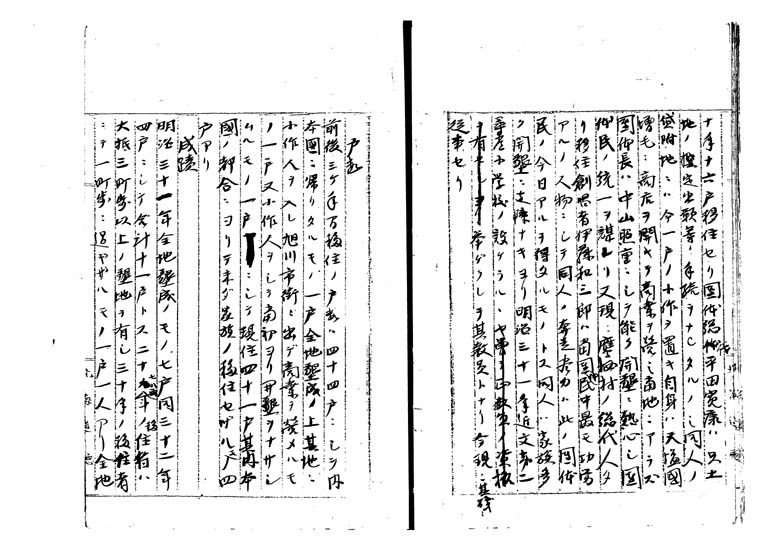 十年十六戸移住セリ団体総代平田寛康ハ只土
地ノ撰定出願等ノ手続ヲナセルノミ同人ノ
貸附地ニハ今一戸ノ小作ヲ置キ自身ハ天塩国
増毛ニ商店ヲ開キテ商業ヲ営ミ当地ニアラズ
団体長ハ中山照重ニシテ能ク開墾ニ熱心シ団
体民ノ統一ヲ謀レリ又現ニ鷹栖村ノ総代人タ
リ移住創唱者伊藤和三郎ハ当団民中最モ功労
アルノ人物ニシテ同人ノ奔走尽力ハ此ノ団体
民ノ今日アルヲ得タルモノトス同人ハ家族多
ク開墾ニ支障ナキヨリ明治三十一年近文第二
尋常小学校ノ設ケラルヽヤ
ヲ有セルヨリ挙ゲラレテ其教員トナリ今現ニ其職
従事セリ
戸数
前後三ケ年間移住ノ戸数ハ四十四戸ニシテ内
本国ニ帰リタルモノ一戸全地墾成ノ上其地ニ
小作人ヲ入レ旭川市街ニ出デ商業ヲ営メルモ
ノ一戸又小作人ヲシテ当初ヨリ開墾ヲナサシ
ムルモノ一戸ニシテ現住四十一戸其内本
国ノ都合ニヨリテ未ダ家族ノ移住セザル戸四
戸アリ
成蹟
明治三十一年全地墾成ノモノ七戸同三十二年
四戸ニシテ合計十一戸トス二十九年ノ移住者ハ
大抵三町歩以上ノ墾地ヲ有シ三十年ノ移住者
ニテ一町歩ニ過ギザルモノ一戸一人アリ全地